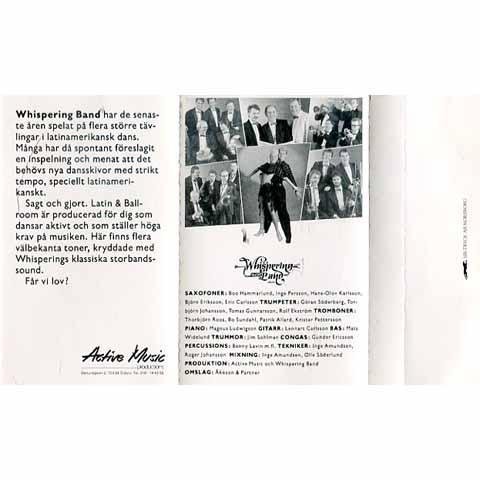 Whispering Band har de senas-
te åren spelat på flera större täv-
lingar i latinamerikansk dans.
Många har då spontant föreslagit
en inspelning och menat att det
behövs nya dansskivor med strikt
tempo, speciellt latinameri-
kanskt.
Sagt och gjort. Latin & Ball-
room är producerad för dig som
dansar aktivt och som ställer höga
krav på musiken. Här finns flera
välbekanta toner, kryddade med
Whisperings klassiska storbands-
sound.
Får vi lov?
Active Music
productions
Whispering
Band
SAXOFONER: Boo Hammarlund, Inge Persson, Hans-Olov Karlsson,
Björn Eriksson, Eric Carlsson TRUMPETER: Göran Söderberg, Tor-
björn Johansson, Tomas Gunnarsson, Rolf Ekström TROMBONER:
Thorbjörn Roos, Bo Sundahl, Patrik Allard, Krister Pettersson
PIANO: Magnus Ludwigson GITARR: Lennart Carlsson BAS: Mats
Widelund TRUMMOR: Jim Sahlman CONGAS: Gunder Ericsson
PERCUSSIONS: Benny Lavin m.fl. TEKNIKER: Inge Amundsen,
Roger Johansson MIXNING: Inge Amundsen, Olle Söderlund
PRODUKTION: Active Music och Whispering Band
OMSLAG: Åkeson & Partner